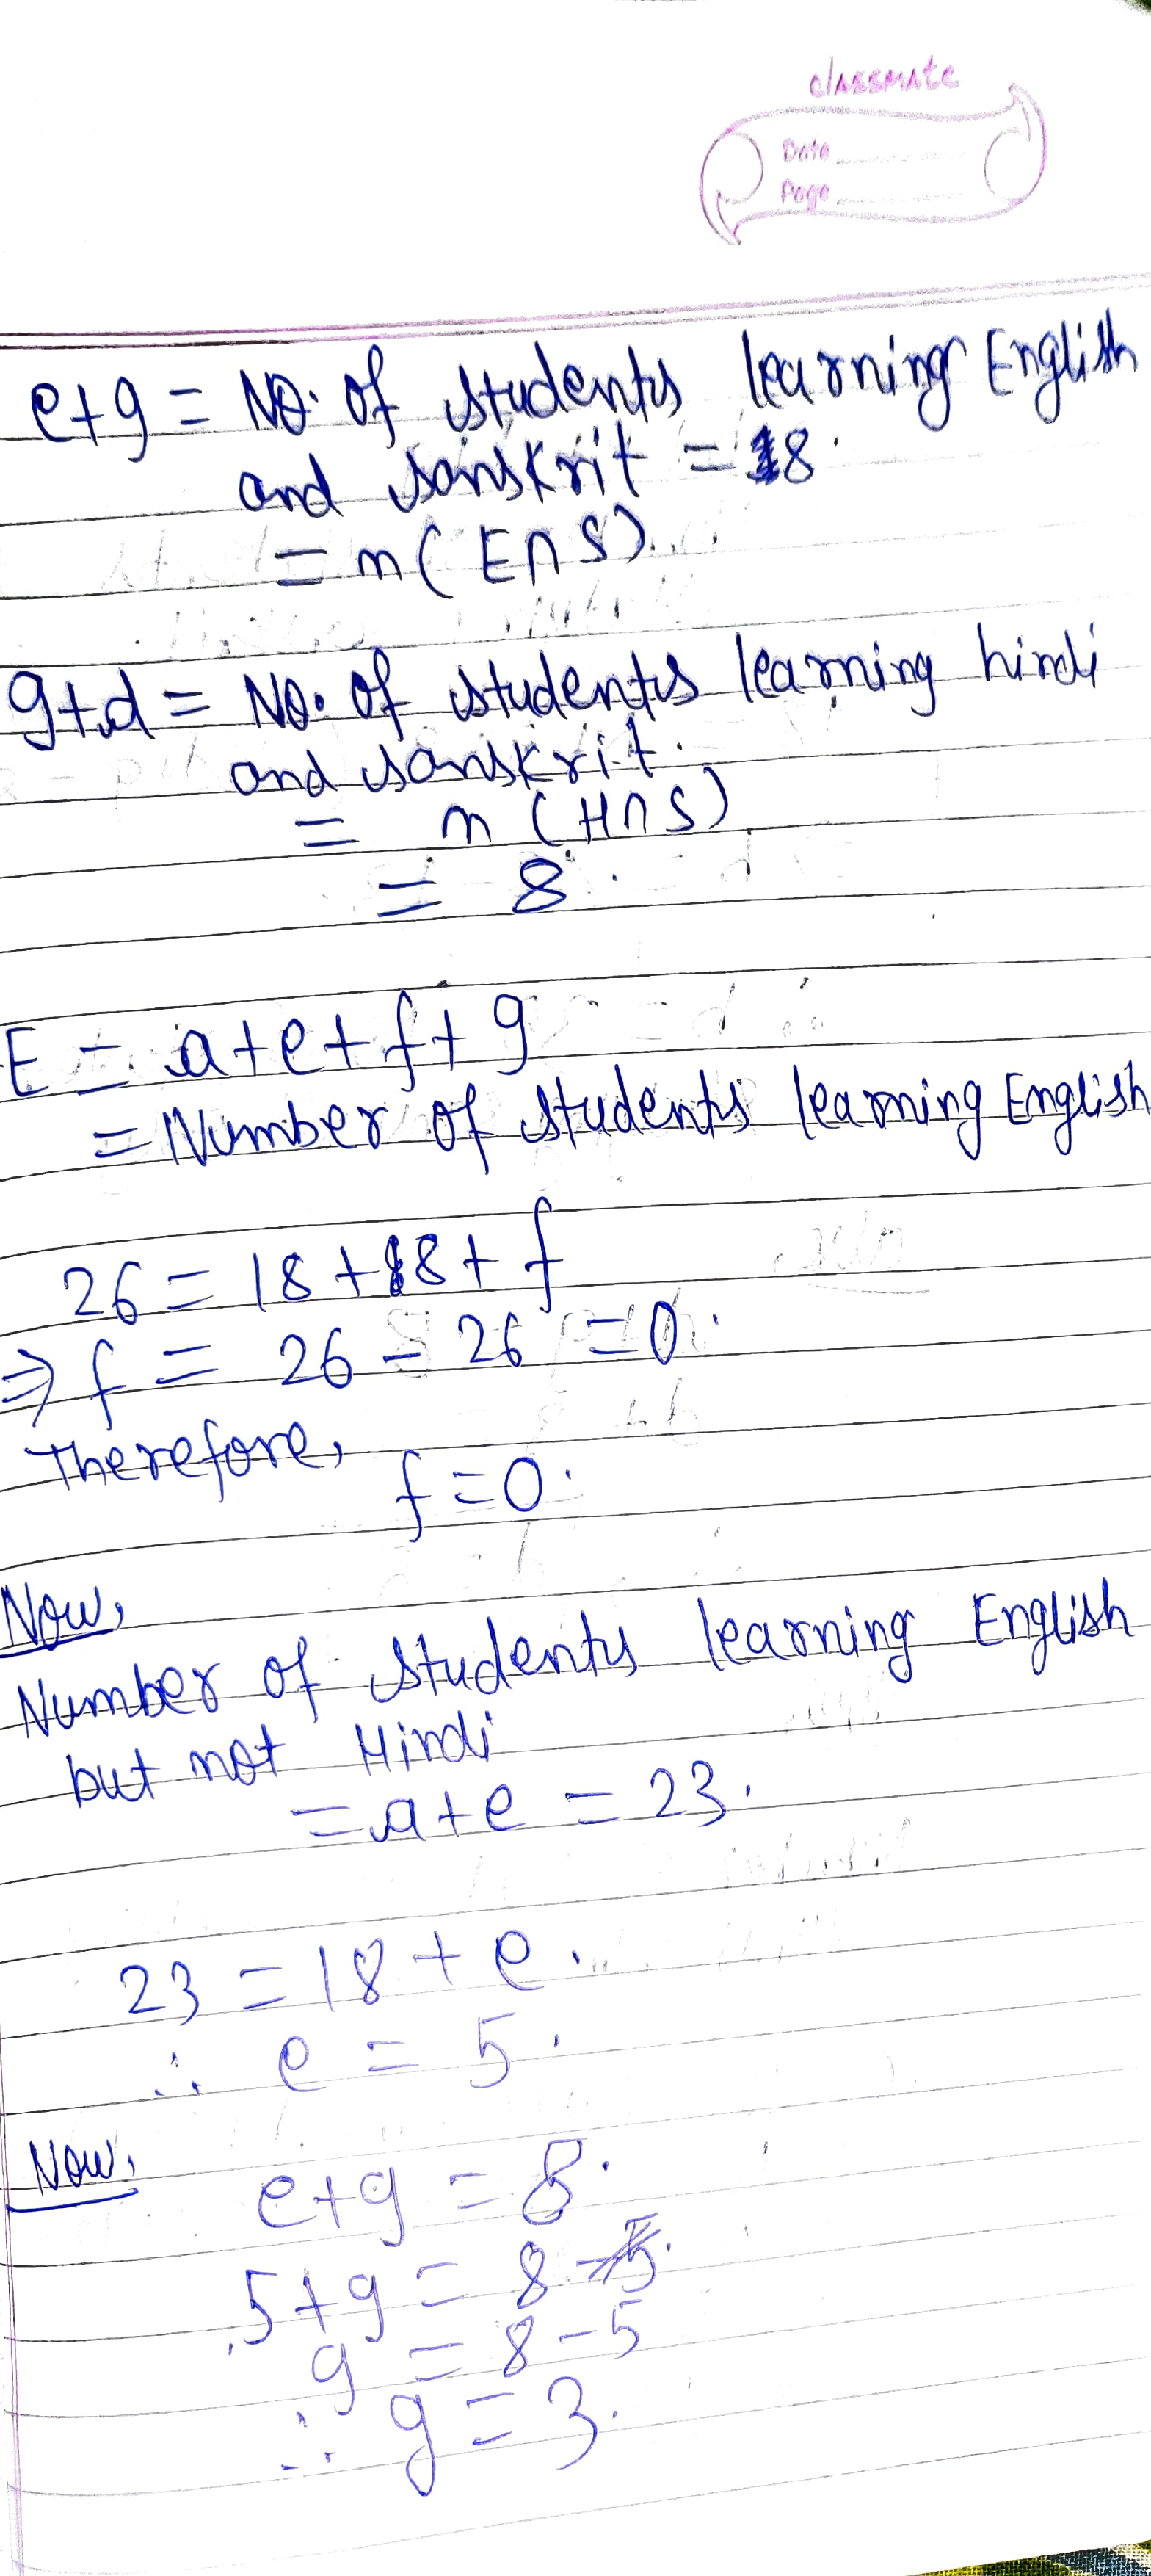 classmate
Date
Page
e+g = No. of students learning English
and sanskrit = 8.
= n(E∩S).
g+d = No. of students learning hindi
and sanskrit.
= n(H∩S)
= 8.
E = a+e+f+g
= Number of students learning English
26 = 18+8+f
⇒ f = 26-26 = 0.
Therefore,
f=0.
Now,
Number of students learning English
but not Hindi
= a+e = 23.
23 = 18+e.
∴ e = 5.
Now,
e+g = 8.
5+g = 8
g = 8-5
∴ g = 3.